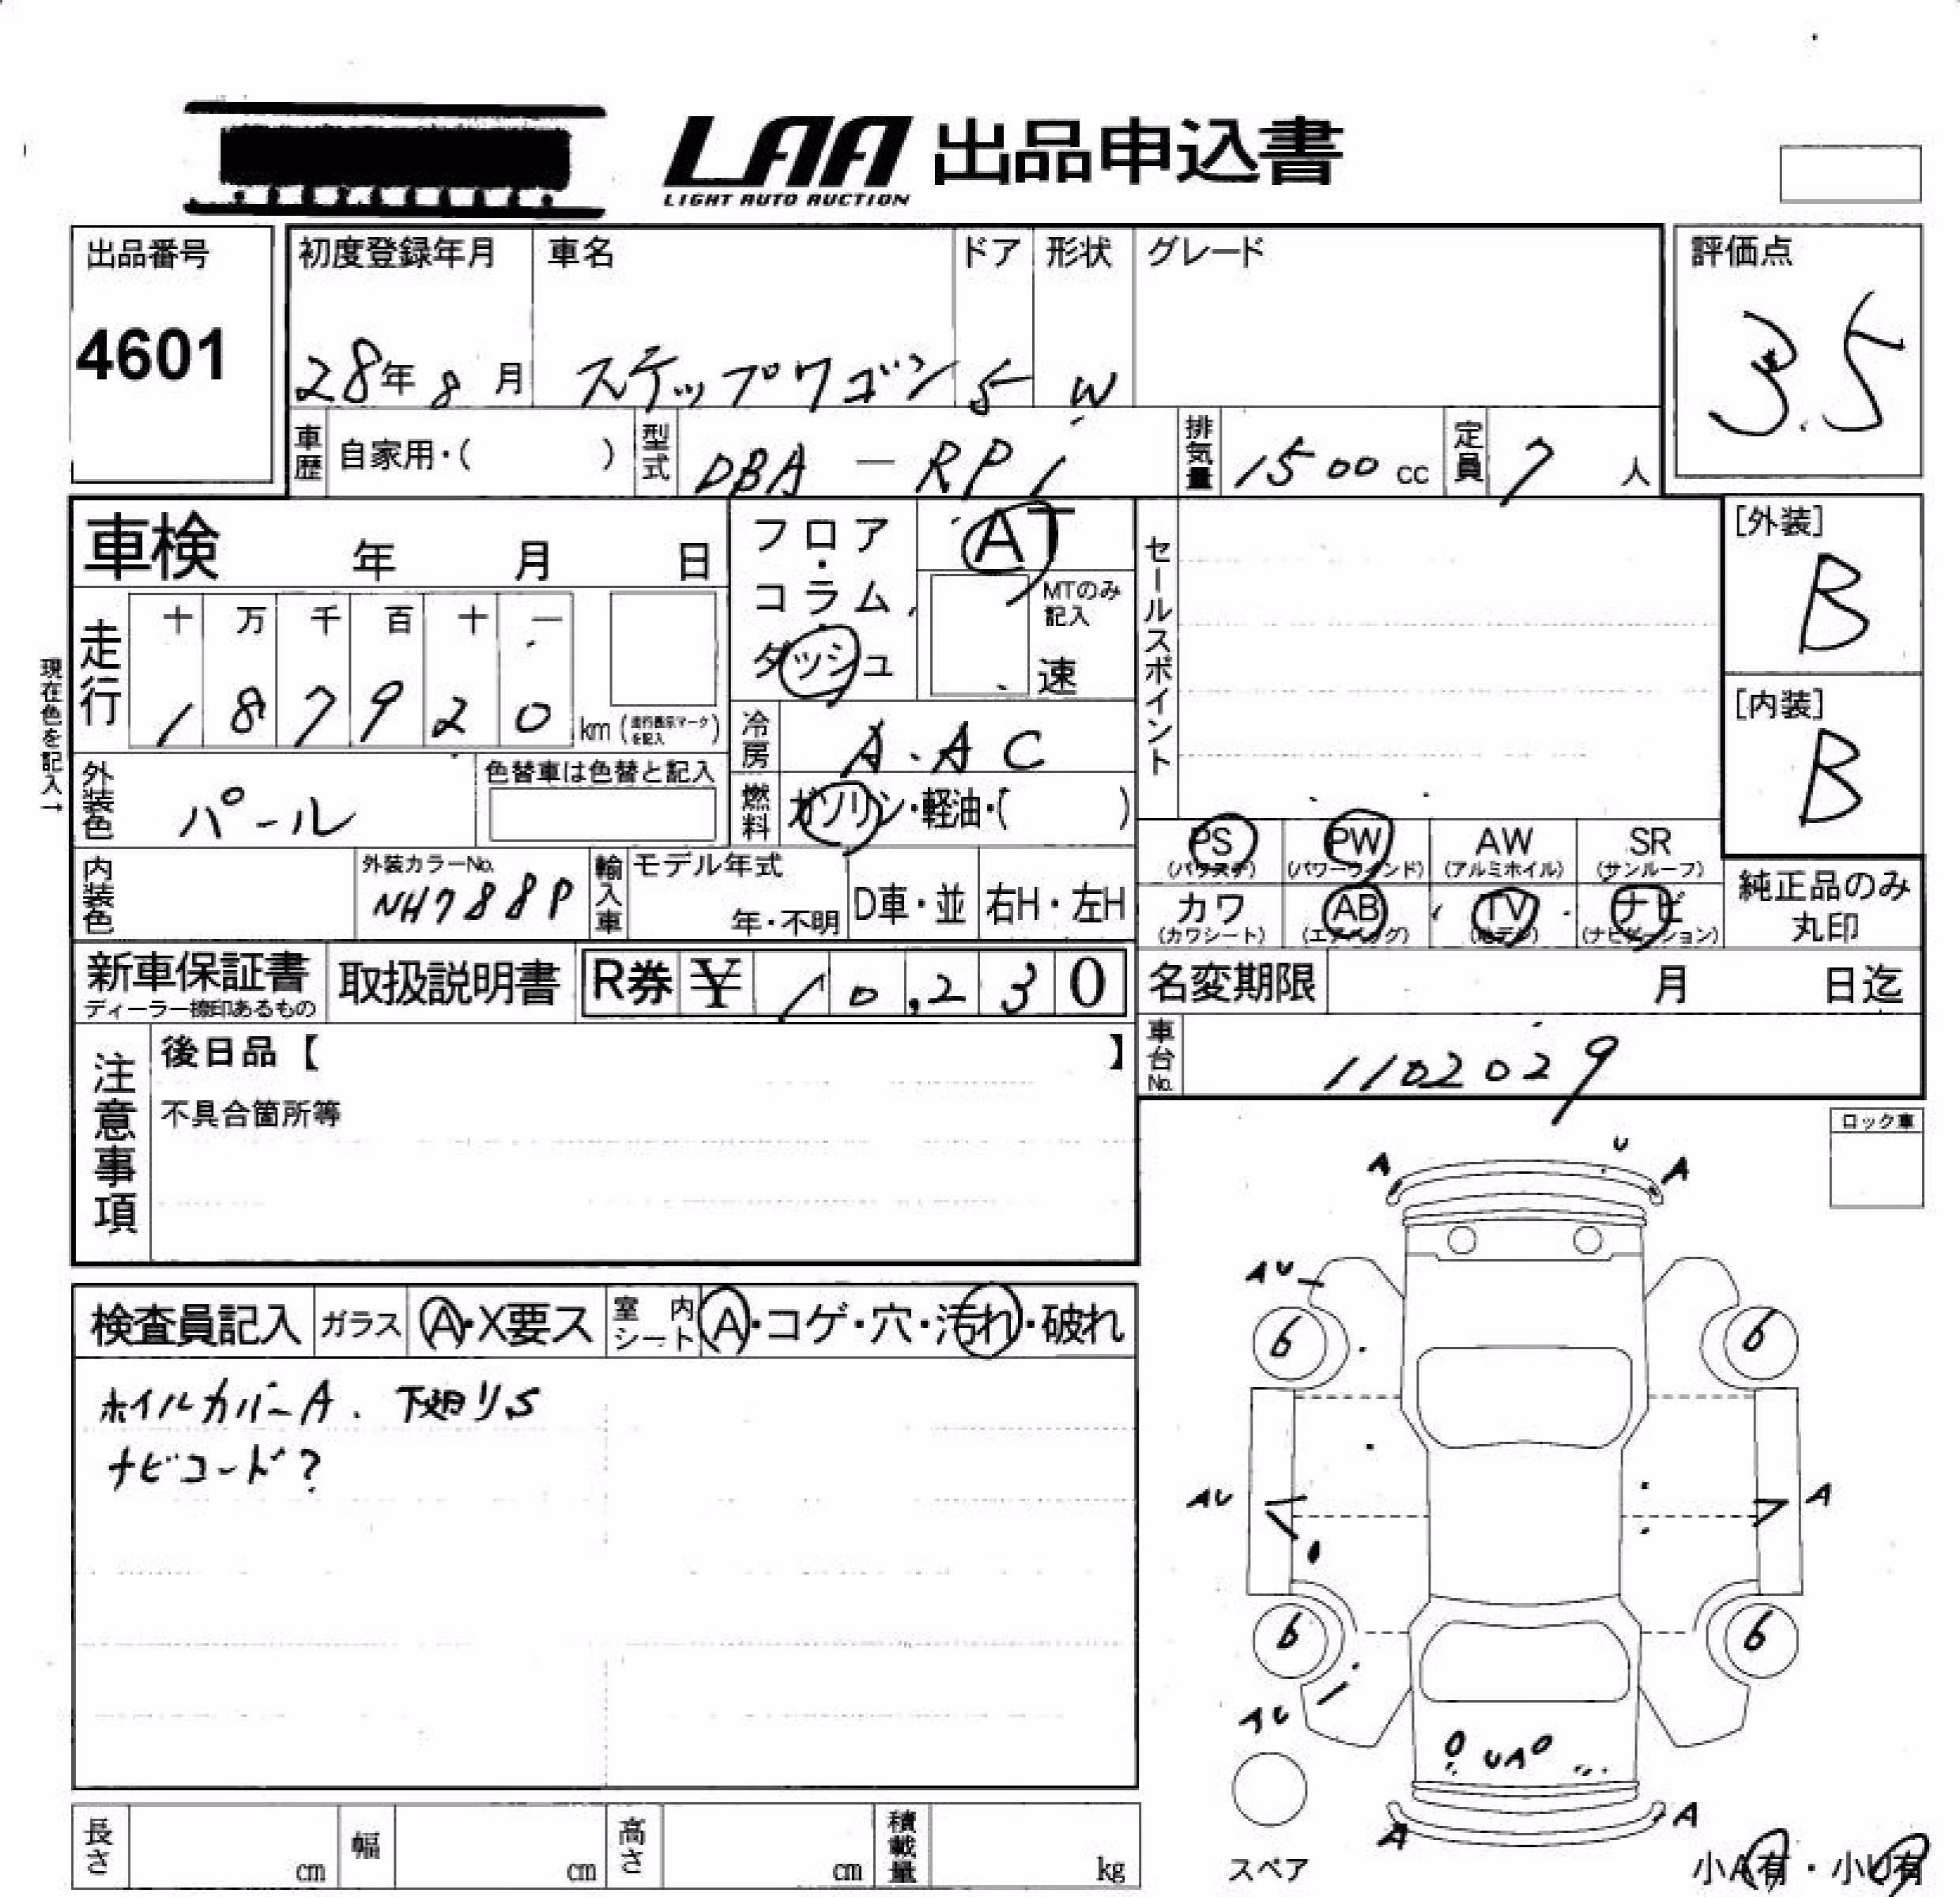 LAA 出品申込書
LIGHT AUTO AUCTION
出品番号
4601
初度登録年月 車名 ドア 形状 グレード
28年 8月 ステップワゴン 5 W
評価点
3.5
車歴 自家用・( ) 型式 DBA - RP1 排気量 1500 cc 定員 7 人
車検 年 月 日
フロア・コラム・ダッシュ
AT
MTのみ記入
速
セールスポイント
[外装]
B
[内装]
B
現在色を記入→
走行 十 万 千 百 十 一
1 8 7 9 2 0 km (走行表示マークを記入)
冷房 A.AC
外装色 パール 色替車は色替と記入
燃料 ガソリン・軽油・( )
PS PW AW SR
(パワステ) (パワーウインド) (アルミホイル) (サンルーフ)
カワ AB TV ナビ
(カワシート) (エアバッグ) (地デジ) (ナビゲーション)
純正品のみ
丸印
内装色 外装カラーNo. NH788P 輸入車 モデル年式 年・不明 D車・並 右H・左H
新車保証書
ディーラー捺印あるもの
取扱説明書 R券 ¥ 10,230
名変期限 月 日迄
車台No. 1102029
注意事項
後日品【 】
不具合箇所等
ロック車
検査員記入 ガラス A・X要ス 室内シート A・コゲ・穴・汚れ・破れ
ホイルカバーA. 下廻りS
ナビコード?
A U A
AU
6 6
AU A
6 6
AU
UA
A A
スペア
小A有・小U有
長さ cm 幅 cm 高さ cm 積載量 kg